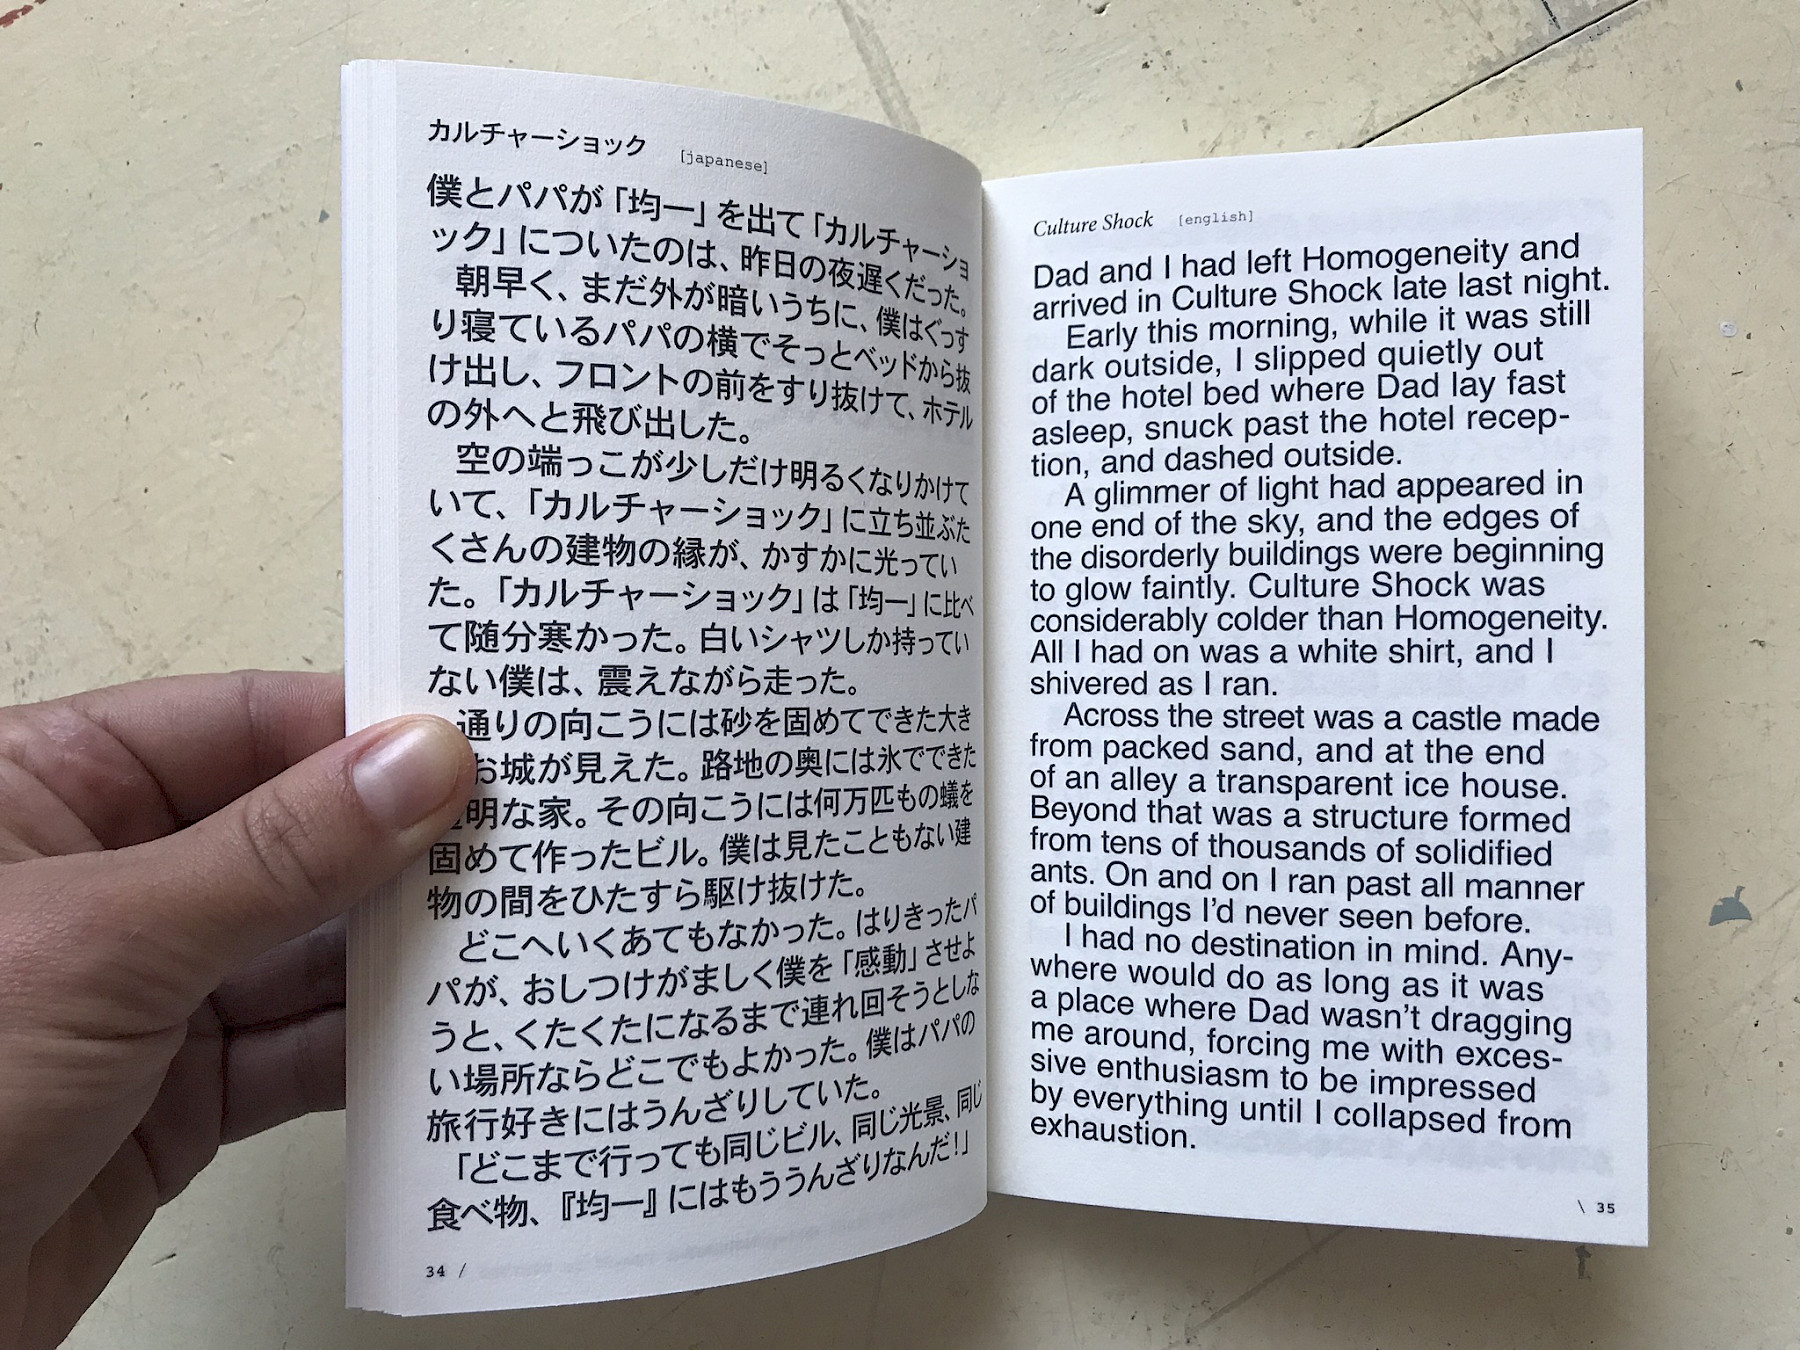 カルチャーショック [japanese]
僕とパパが「均一」を出て「カルチャーショ
ック」についたのは、昨日の夜遅くだった。
朝早く、まだ外が暗いうちに、僕はぐっす
り寝ているパパの横でそっとベッドから抜
け出し、フロントの前をすり抜けて、ホテル
の外へと飛び出した。
空の端っこが少しだけ明るくなりかけて
いて、「カルチャーショック」に立ち並ぶた
くさんの建物の縁が、かすかに光ってい
た。「カルチャーショック」は「均一」に比べ
て随分寒かった。白いシャツしか持ってい
ない僕は、震えながら走った。
通りの向こうには砂を固めてできた大き
お城が見えた。路地の奥には氷でできた
明な家。その向こうには何万匹もの蟻を
固めて作ったビル。僕は見たこともない建
物の間をひたすら駆け抜けた。
どこへいくあてもなかった。はりきったパ
パが、おしつけがましく僕を「感動」させよ
うと、くたくたになるまで連れ回そうとしな
い場所ならどこでもよかった。僕はパパの
旅行好きにはうんざりしていた。
「どこまで行っても同じビル、同じ光景、同じ
食べ物、『均一』にはもううんざりなんだ!」
34 /
Culture Shock [english]
Dad and I had left Homogeneity and
arrived in Culture Shock late last night.
Early this morning, while it was still
dark outside, I slipped quietly out
of the hotel bed where Dad lay fast
asleep, snuck past the hotel recep-
tion, and dashed outside.
A glimmer of light had appeared in
one end of the sky, and the edges of
the disorderly buildings were beginning
to glow faintly. Culture Shock was
considerably colder than Homogeneity.
All I had on was a white shirt, and I
shivered as I ran.
Across the street was a castle made
from packed sand, and at the end
of an alley a transparent ice house.
Beyond that was a structure formed
from tens of thousands of solidified
ants. On and on I ran past all manner
of buildings I'd never seen before.
I had no destination in mind. Any-
where would do as long as it was
a place where Dad wasn't dragging
me around, forcing me with exces-
sive enthusiasm to be impressed
by everything until I collapsed from
exhaustion.
\ 35